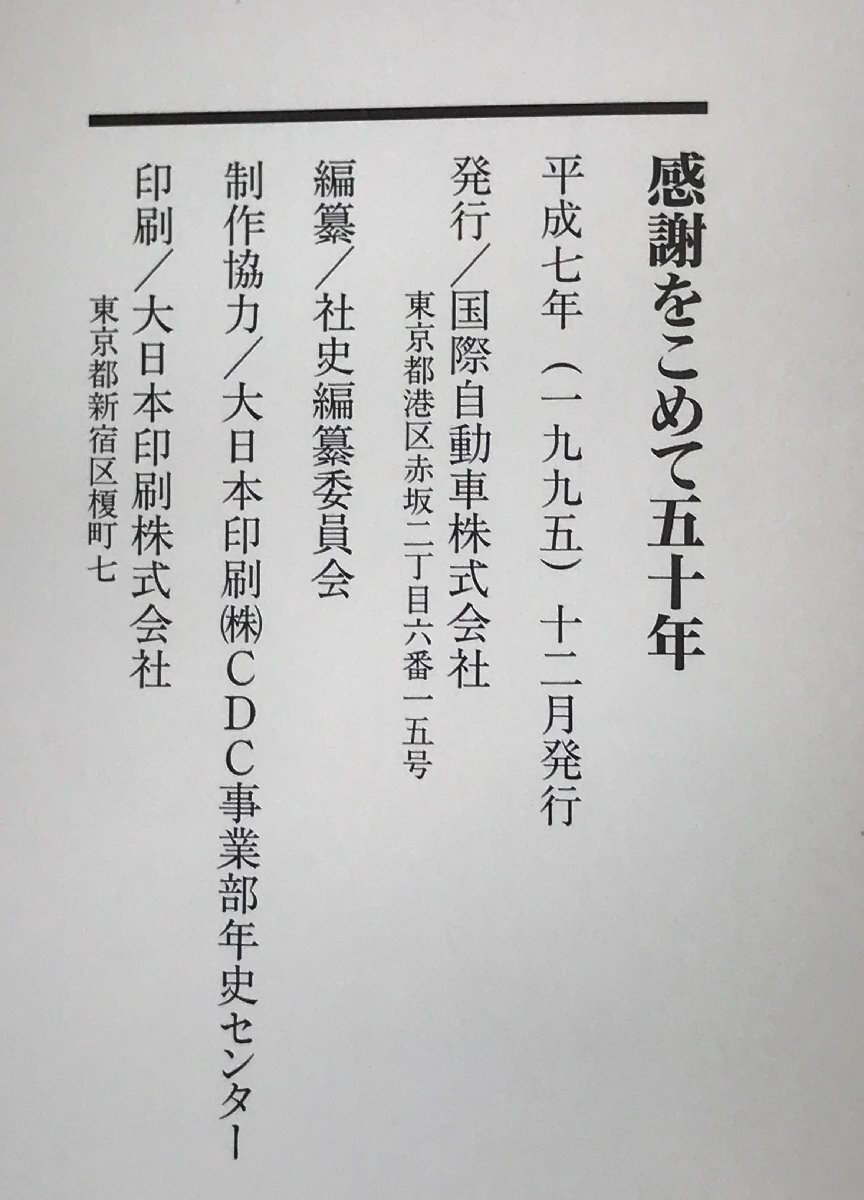 感謝をこめて五十年
平成七年(一九九五)十二月発行
発行/国際自動車株式会社
東京都港区赤坂二丁目六番一五号
編纂/社史編纂委員会
制作協力/大日本印刷㈱CDC事業部年史センター
印刷/大日本印刷株式会社
東京都新宿区榎町七